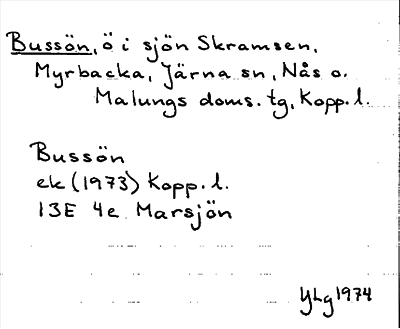 Bussön, ö i sjön Skramsen,
Myrbacka, Järna sn, Nås o.
Malungs doms. tg, Kopp. l.
Bussön
ek (1973) Kopp. l.
13E 4e Marsjön
YLg 1974